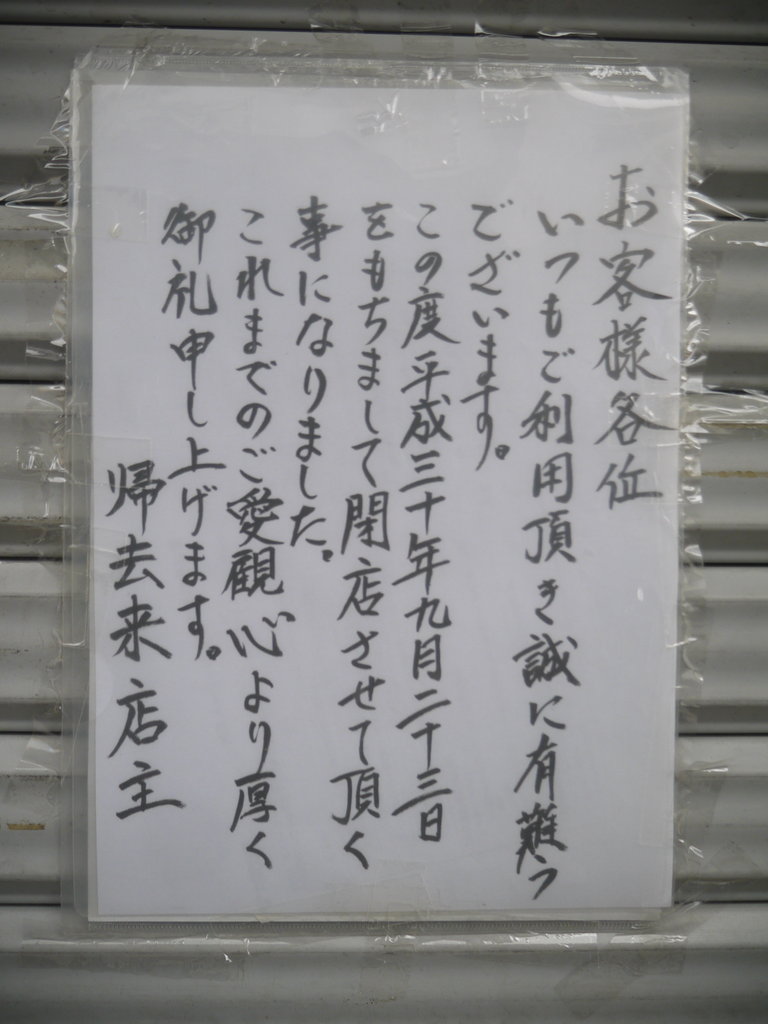 お客様各位
いつもご利用頂き誠に有難う
ございます。
この度平成三十年九月二十三日
をもちまして閉店させて頂く
事になりました。
これまでのご愛観心より厚く
御礼申し上げます。
帰去来店主